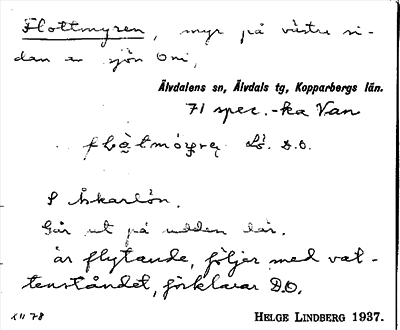 Flottmyren, myr på västra si-
dan av sjön Omi,
Älvdalens sn, Älvdals tg, Kopparbergs län.
71 spec. -ka Van
D.O.
S Åkarlön.
Går ut på udden där.
är flytande, följer med vat-
tenståndet, förklarar D.O.
XII 78
HELGE LINDBERG 1937.